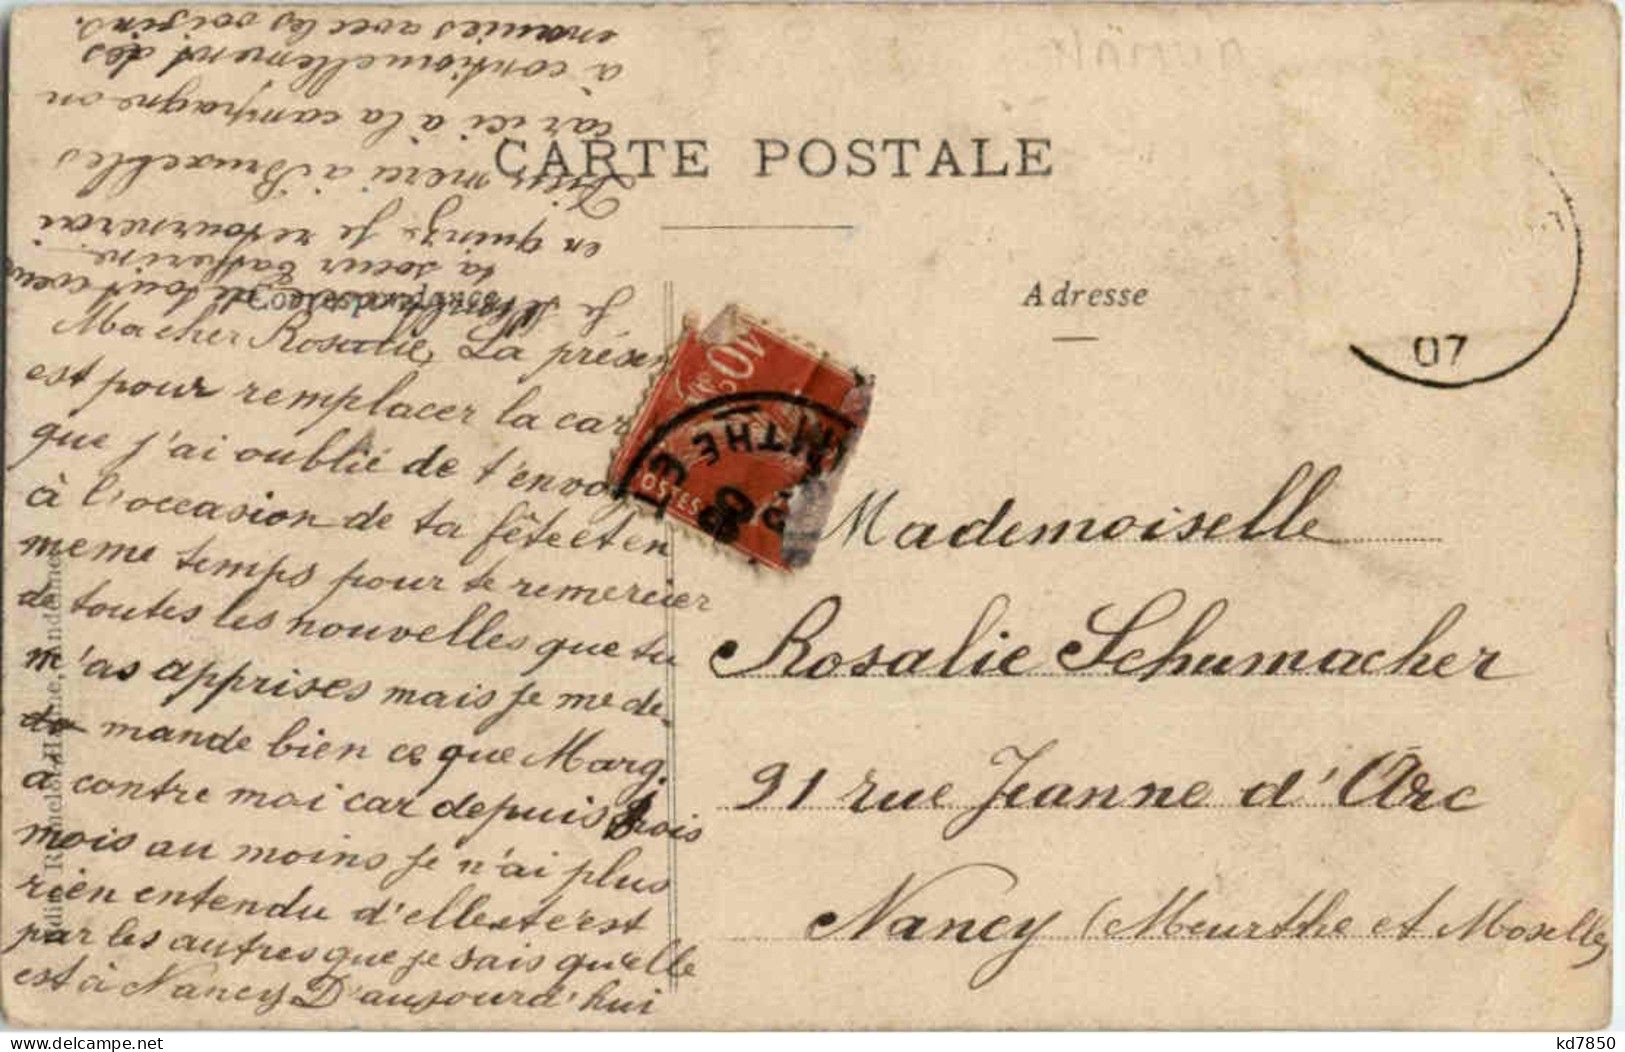 CARTE POSTALE
Correspondance
Adresse
07
10
POSTES
Ma cher Rosalie, La présen
est pour remplacer la car
que j'ai oublié de t'envoy
à l'occasion de ta fête et en
meme temps pour te remercier
de toutes les nouvelles que tu
m'as apprises mais je me de-
mande bien ce que Marg.
a contre moi car depuis trois
mois au moins je n'ai plus
rien entendu d'elle et c'est
par les autres que je sais qu'elle
est à Nancy D'aujourd'hui
en quinze je retournerai
Dieu merci à Bruxelles
car ici à la campagne on
a continuellement des
ennuies avec les voisins.
Je de tout coeur
ta soeur Catherine
Mademoiselle
Rosalie Schumacher
91 rue Jeanne d'Arc
Nancy (Meurthe et Moselle)
kd7850